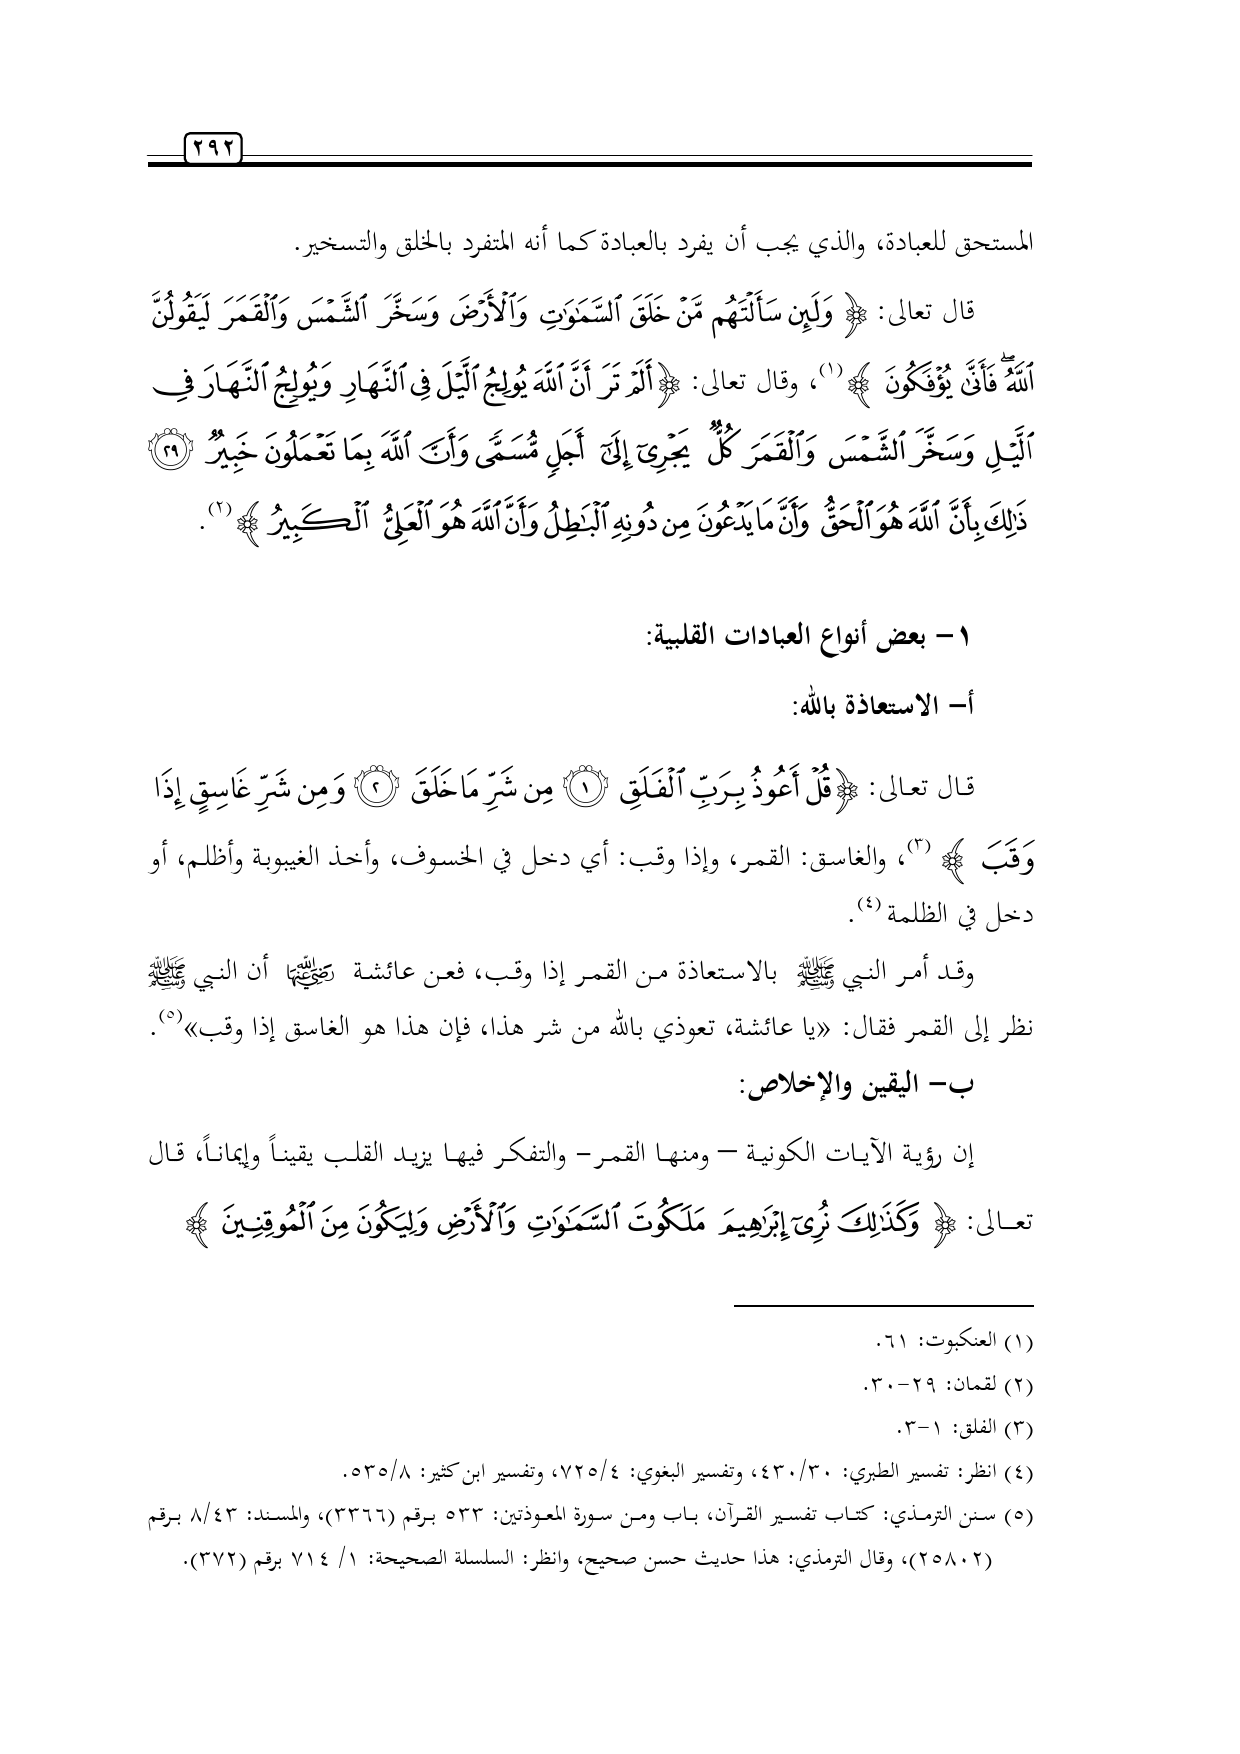 ٢٩٢
المستحق للعبادة، والذي يجب أن يفرد بالعبادة كما أنه المتفرد بالخلق والتسخير.
قال تعالى: ﴿ وَلَئِن سَأَلْتَهُم مَّنْ خَلَقَ ٱلسَّمَٰوَٰتِ وَٱلْأَرْضَ وَسَخَّرَ ٱلشَّمْسَ وَٱلْقَمَرَ لَيَقُولُنَّ
ٱللَّهُ ۖ فَأَنَّىٰ يُؤْفَكُونَ ﴾(١)، وقال تعالى: ﴿أَلَمْ تَرَ أَنَّ ٱللَّهَ يُولِجُ ٱلَّيْلَ فِى ٱلنَّهَارِ وَيُولِجُ ٱلنَّهَارَ فِى
ٱلَّيْلِ وَسَخَّرَ ٱلشَّمْسَ وَٱلْقَمَرَ كُلٌّ يَجْرِىٓ إِلَىٰٓ أَجَلٍ مُّسَمًّى وَأَنَّ ٱللَّهَ بِمَا تَعْمَلُونَ خَبِيرٌ ٢٩
ذَٰلِكَ بِأَنَّ ٱللَّهَ هُوَ ٱلْحَقُّ وَأَنَّ مَا يَدْعُونَ مِن دُونِهِ ٱلْبَٰطِلُ وَأَنَّ ٱللَّهَ هُوَ ٱلْعَلِىُّ ٱلْكَبِيرُ ﴾(٢).
١– بعض أنواع العبادات القلبية:
أ– الاستعاذة بالله:
قال تعالى: ﴿قُلْ أَعُوذُ بِرَبِّ ٱلْفَلَقِ ١ مِن شَرِّ مَا خَلَقَ ٢ وَمِن شَرِّ غَاسِقٍ إِذَا
وَقَبَ ﴾ (٣)، والغاسق: القمر، وإذا وقب: أي دخل في الخسوف، وأخذ الغيبوبة وأظلم، أو
دخل في الظلمة (٤).
وقد أمر النبي ﷺ بالاستعاذة من القمر إذا وقب، فعن عائشة رضي الله عنها أن النبي ﷺ
نظر إلى القمر فقال: «يا عائشة، تعوذي بالله من شر هذا، فإن هذا هو الغاسق إذا وقب»(٥).
ب– اليقين والإخلاص:
إن رؤية الآيات الكونية – ومنها القمر– والتفكر فيها يزيد القلب يقيناً وإيماناً، قال
تعالى: ﴿ وَكَذَٰلِكَ نُرِىٓ إِبْرَٰهِيمَ مَلَكُوتَ ٱلسَّمَٰوَٰتِ وَٱلْأَرْضِ وَلِيَكُونَ مِنَ ٱلْمُوقِنِينَ ﴾
(١) العنكبوت: ٦١.
(٢) لقمان: ٢٩-٣٠.
(٣) الفلق: ١-٣.
(٤) انظر: تفسير الطبري: ٤٣٠/٣٠، وتفسير البغوي: ٧٢٥/٤، وتفسير ابن كثير: ٥٣٥/٨.
(٥) سنن الترمذي: كتاب تفسير القرآن، باب ومن سورة المعوذتين: ٥٣٣ برقم (٣٣٦٦)، والمسند: ٨/٤٣ برقم
(٢٥٨٠٢)، وقال الترمذي: هذا حديث حسن صحيح، وانظر: السلسلة الصحيحة: ١/ ٧١٤ برقم (٣٧٢).